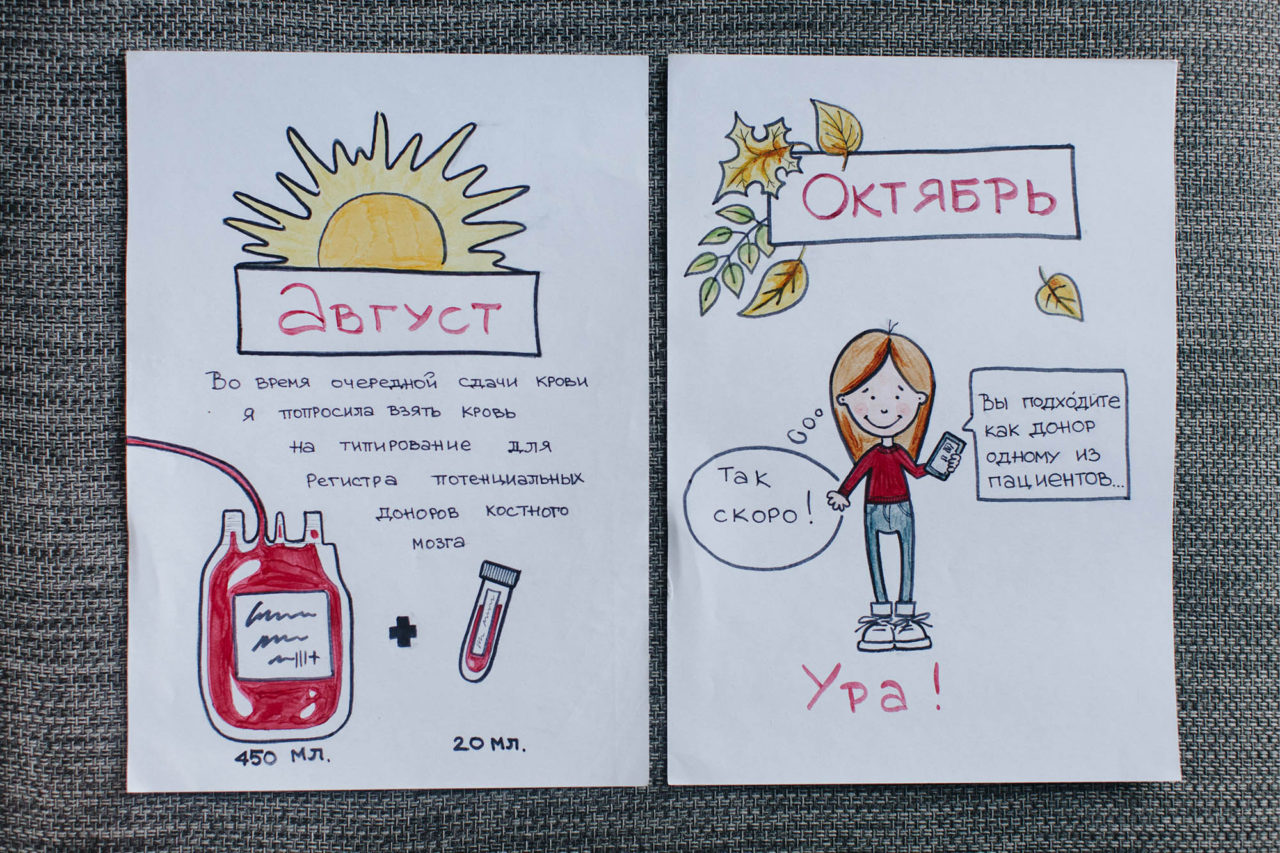 Август
Во время очередной сдачи крови
я попросила взять кровь
на типирование для
Регистра потенциальных
доноров костного
мозга
450 мл.
20 мл.
Октябрь
Вы подходите
как донор
одному из
пациентов...
Так
скоро!
Ура!